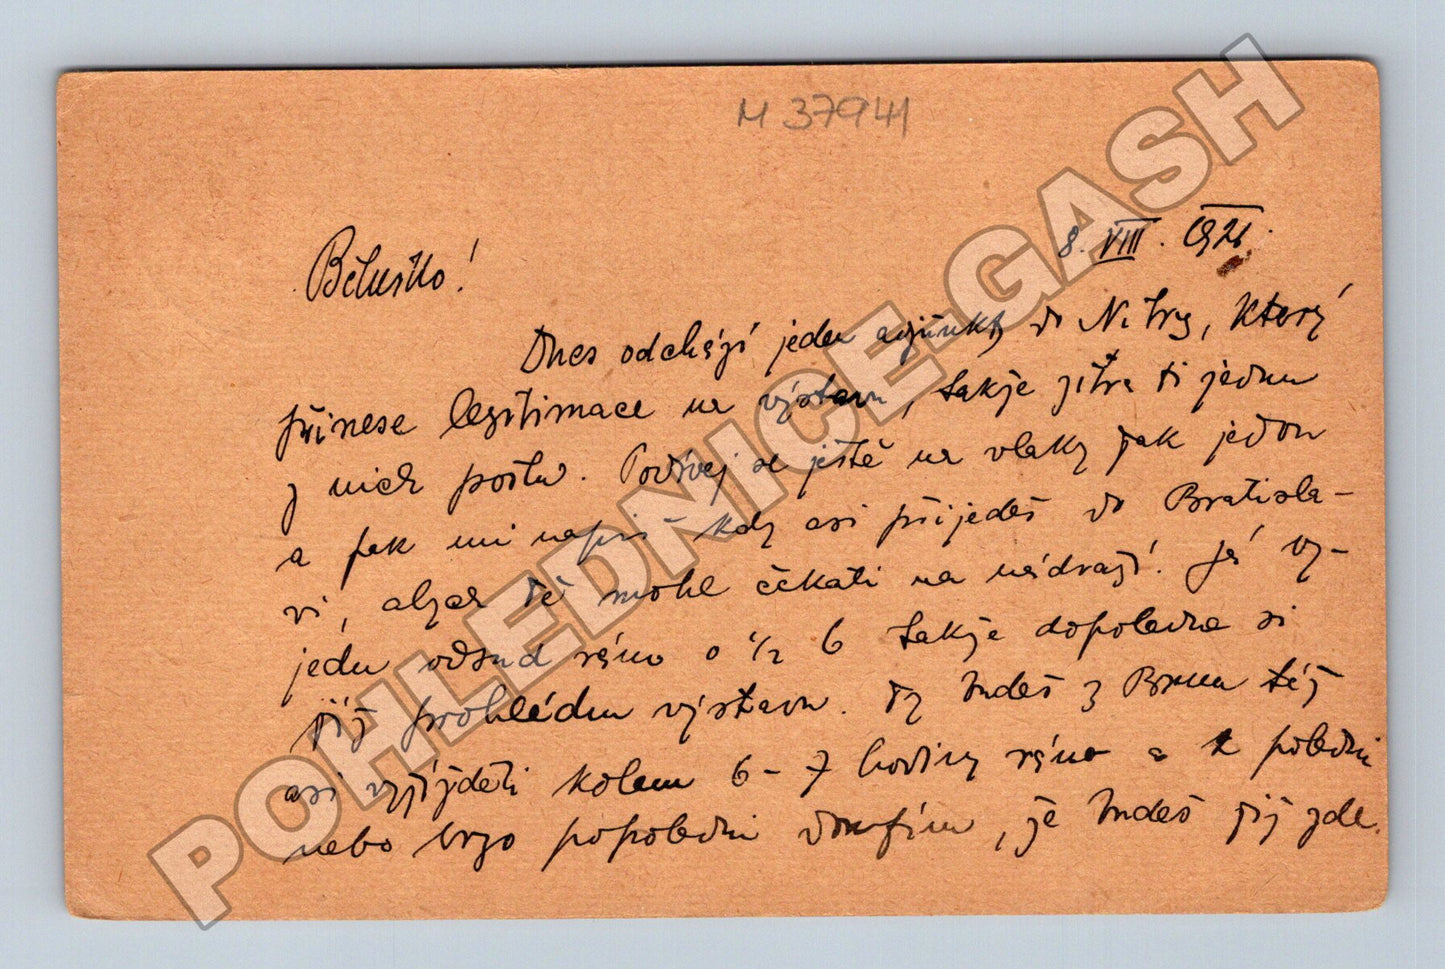 M 37941
8. VIII. 1921.
Běluško!
Dnes odchází jeden adjunkt do Nitry, který
přinese legitimace na výstavu, takže zítra ti jednu
z nich pošlu. Podívej se ještě na vlaky jak jedou
a pak mi napiš kdy asi přijedeš do Bratisla-
vi, abych tě mohl čekati na nádraží. Já vy-
jedu odsud ráno o ½ 6 takže dopoledne si
již prohlédnu výstavu. Ty budeš z Brna též
asi vyjížděti kolem 6-7 hodiny ráno a k poledni
nebo brzo popoledni doufám, že budeš již zde.
POHLEDNICE-GASH